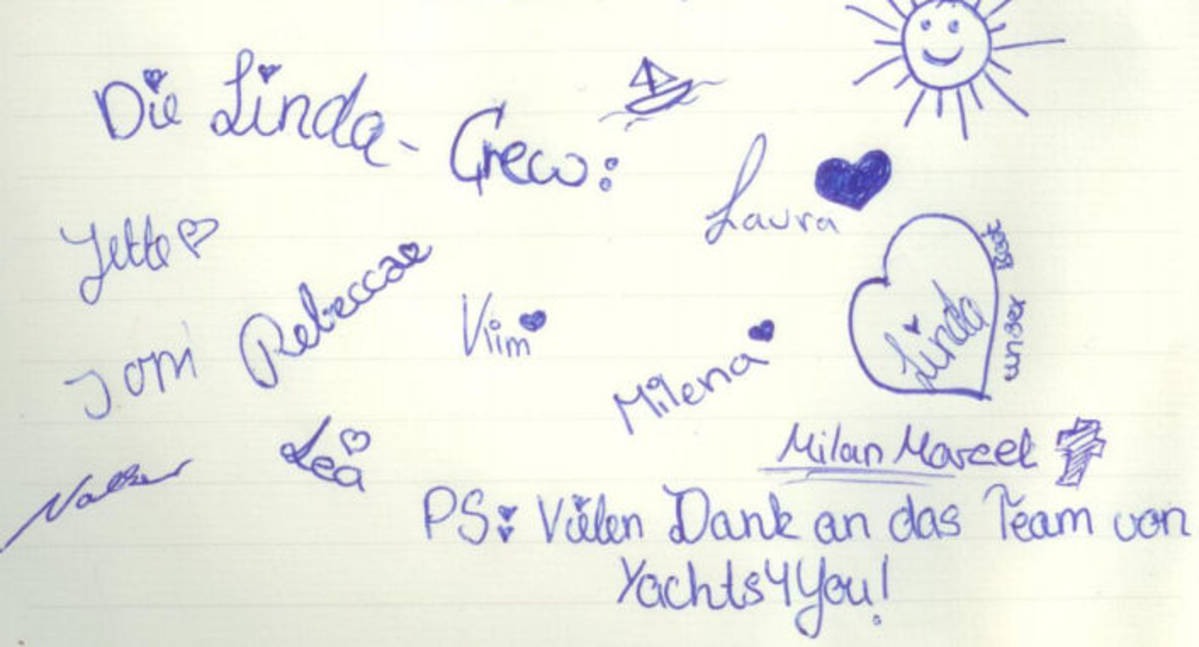 Die Linda-Crew:
Laura
Jette
Rebecca
Joni
Kim
Milena
Linda
unser Boot
Lea
Milan Marcel
PS: Vielen Dank an das Team von
Yachts4You!